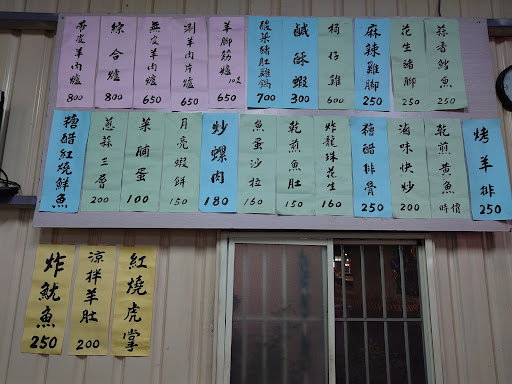 帶皮羊肉爐 800
綜合爐 800
無皮羊肉爐 650
涮羊肉片爐 650
羊腳筋爐 10支 650
酸菜豬肚雞鍋 700
鹹酥蝦 300
桶仔雞 600
麻辣雞腳 250
花生豬腳 250
蒜香魚 250
糖醋紅燒鮮魚
蔥蒜三層 200
菜脯蛋 100
月亮蝦餅 150
炒螺肉 180
魚蛋沙拉 160
乾煎魚肚 150
炸龍珠花生 160
糖醋排骨 250
滷味快炒 200
乾煎黃魚 時價
烤羊排 250
炸魷魚 250
涼拌羊肚 200
紅燒虎掌